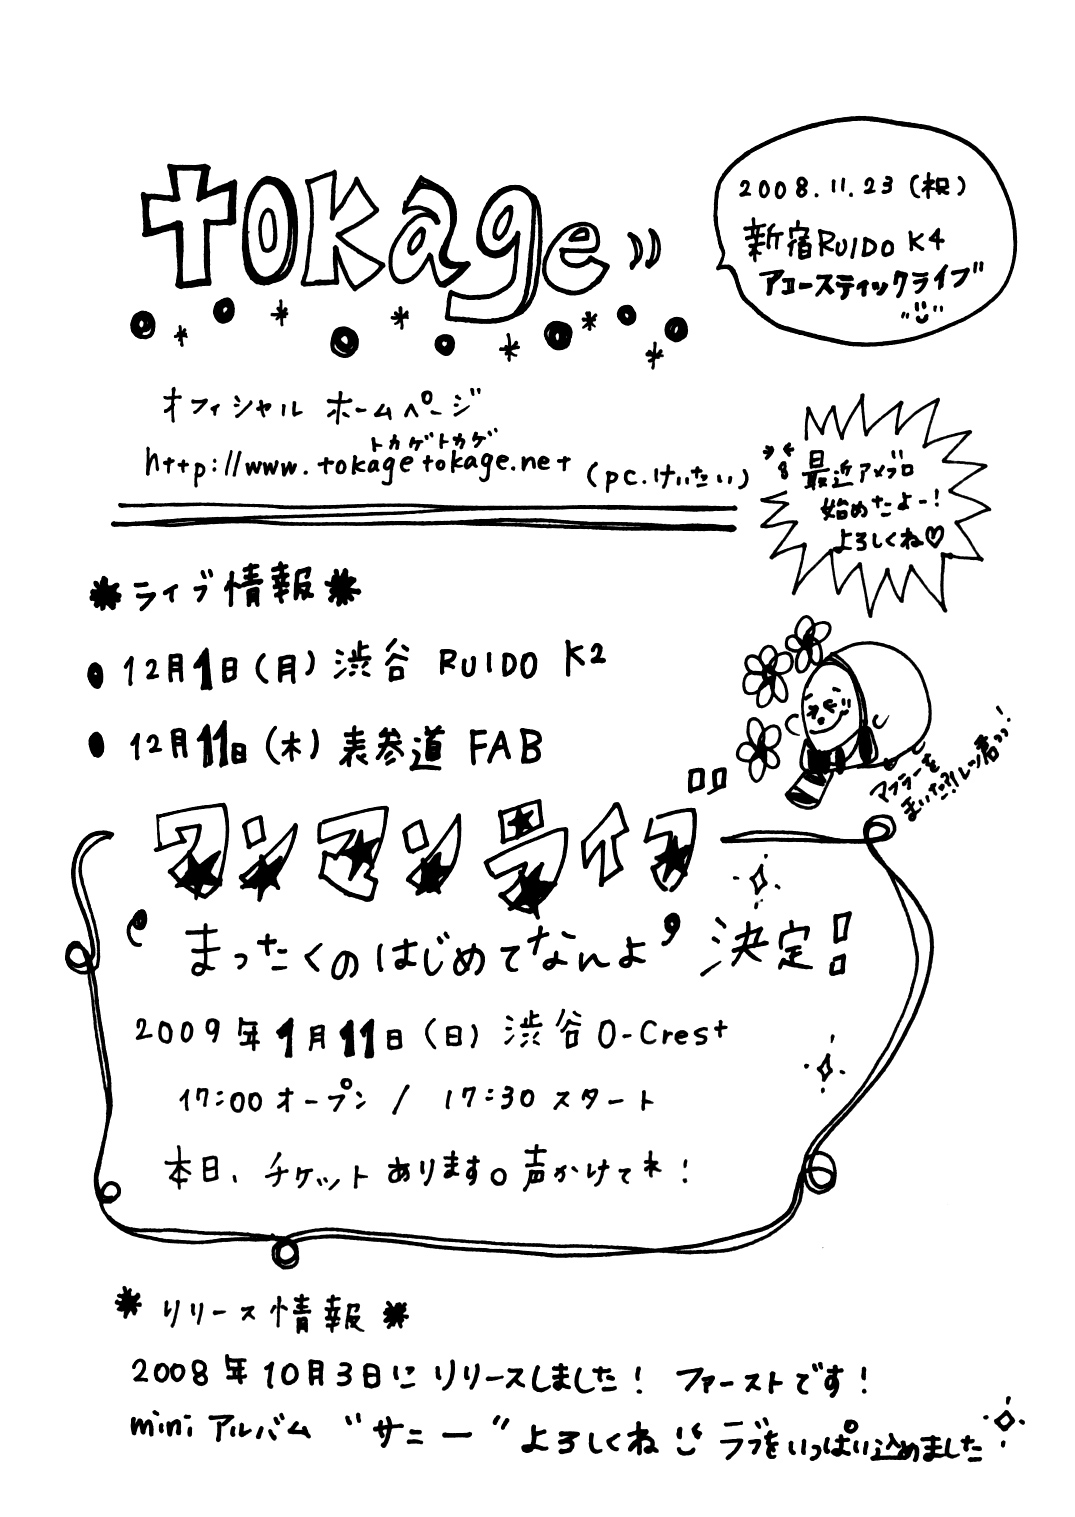 tokage
2008.11.23(祝)
新宿RUIDO K4
アコースティックライブ
オフィシャル ホームページ
トカゲトカゲ
http://www.tokagetokage.net (pc.けいたい)
最近アメブロ
始めたよー!
よろしくね♡
*ライブ情報*
● 12月1日(月) 渋谷 RUIDO K2
● 12月11日(木) 表参道 FAB
マフラーを
まいた
ワンマンライブ
“まったくのはじめてなんよ” 決定!!
2009年1月11日(日) 渋谷 O-Crest
17:00 オープン / 17:30 スタート
本日、チケットあります。声かけてネ!
*リリース情報*
2008年10月3日にリリースしました! ファーストです!
mini アルバム “サニー” よろしくね ラブをいっぱい込めました